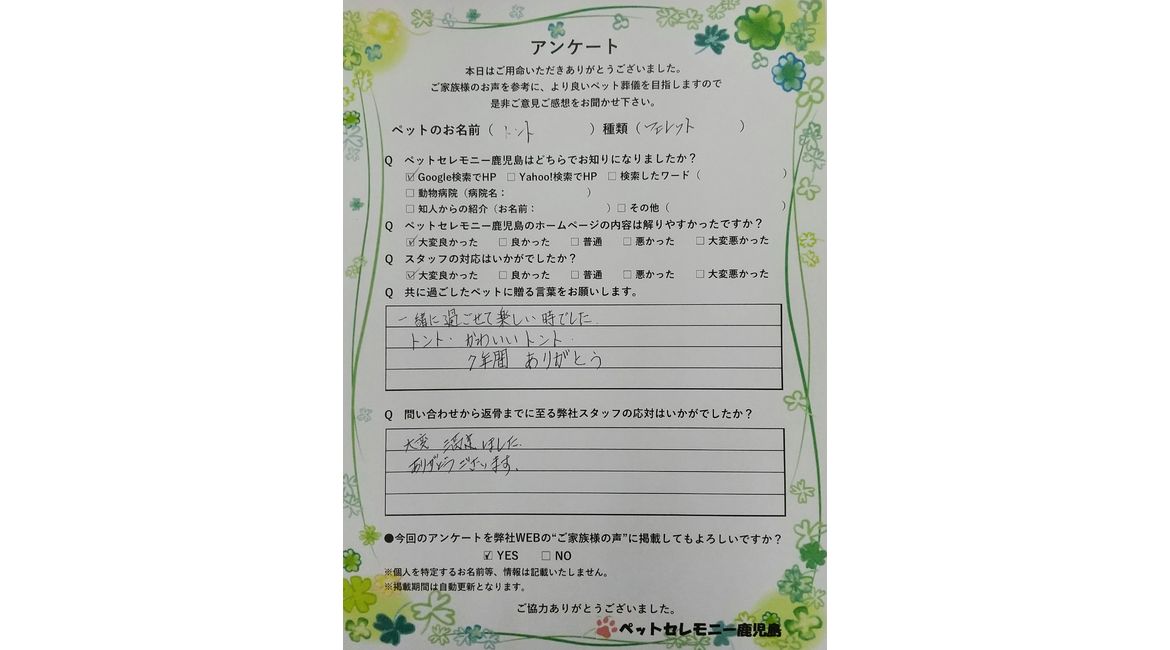 アンケート
本日はご用命いただきありがとうございました。
ご家族様のお声を参考に、より良いペット葬儀を目指しますので
是非ご意見ご感想をお聞かせ下さい。
ペットのお名前（ トント ）種類（ フェレット ）
Q ペットセレモニー鹿児島はどちらでお知りになりましたか？
☑ Google検索でHP □ Yahoo!検索でHP □ 検索したワード（ ）
□ 動物病院（病院名： ）
□ 知人からの紹介（お名前： ）□ その他（ ）
Q ペットセレモニー鹿児島のホームページの内容は解りやすかったですか？
☑ 大変良かった □ 良かった □ 普通 □ 悪かった □ 大変悪かった
Q スタッフの対応はいかがでしたか？
☑ 大変良かった □ 良かった □ 普通 □ 悪かった □ 大変悪かった
Q 共に過ごしたペットに贈る言葉をお願いします。
一緒に過ごせて楽しい時でした.
トント・かわいいトント・
7年間 ありがとう
Q 問い合わせから返骨までに至る弊社スタッフの応対はいかがでしたか？
大変 しました.
ありがとうございます。
●今回のアンケートを弊社WEBの“ご家族様の声”に掲載してもよろしいですか？
☑ YES □ NO
※個人を特定するお名前等、情報は記載いたしません。
※掲載期間は自動更新となります。
ご協力ありがとうございました。
ペットセレモニー鹿児島